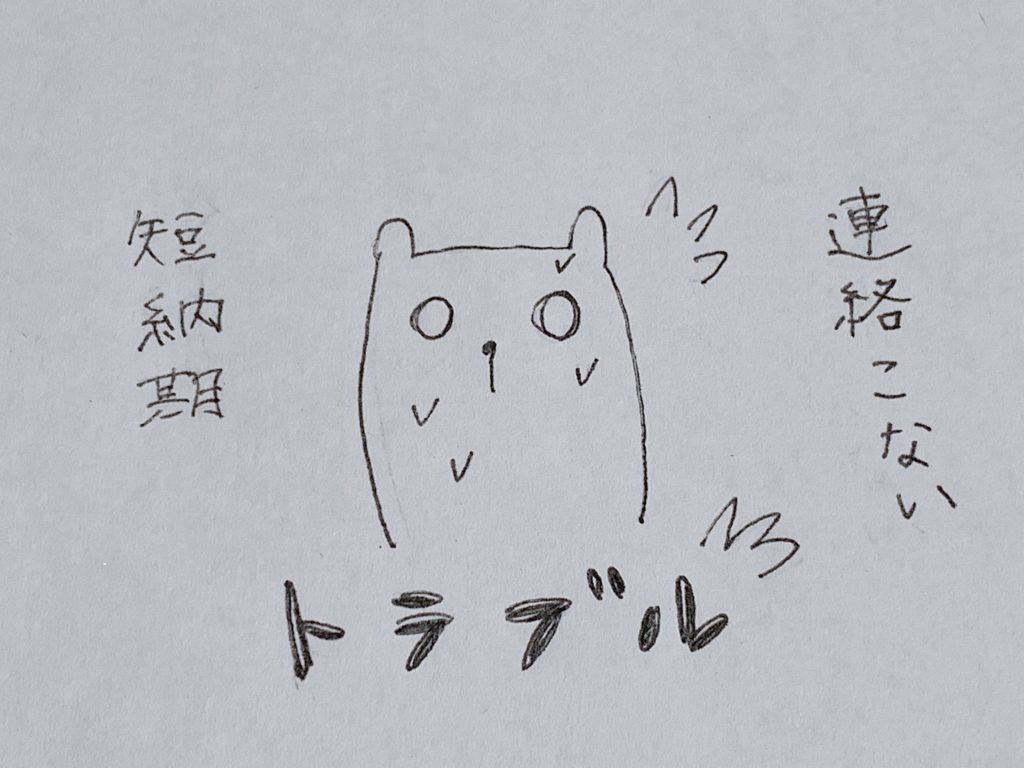 連絡こない
短納期
トラブル